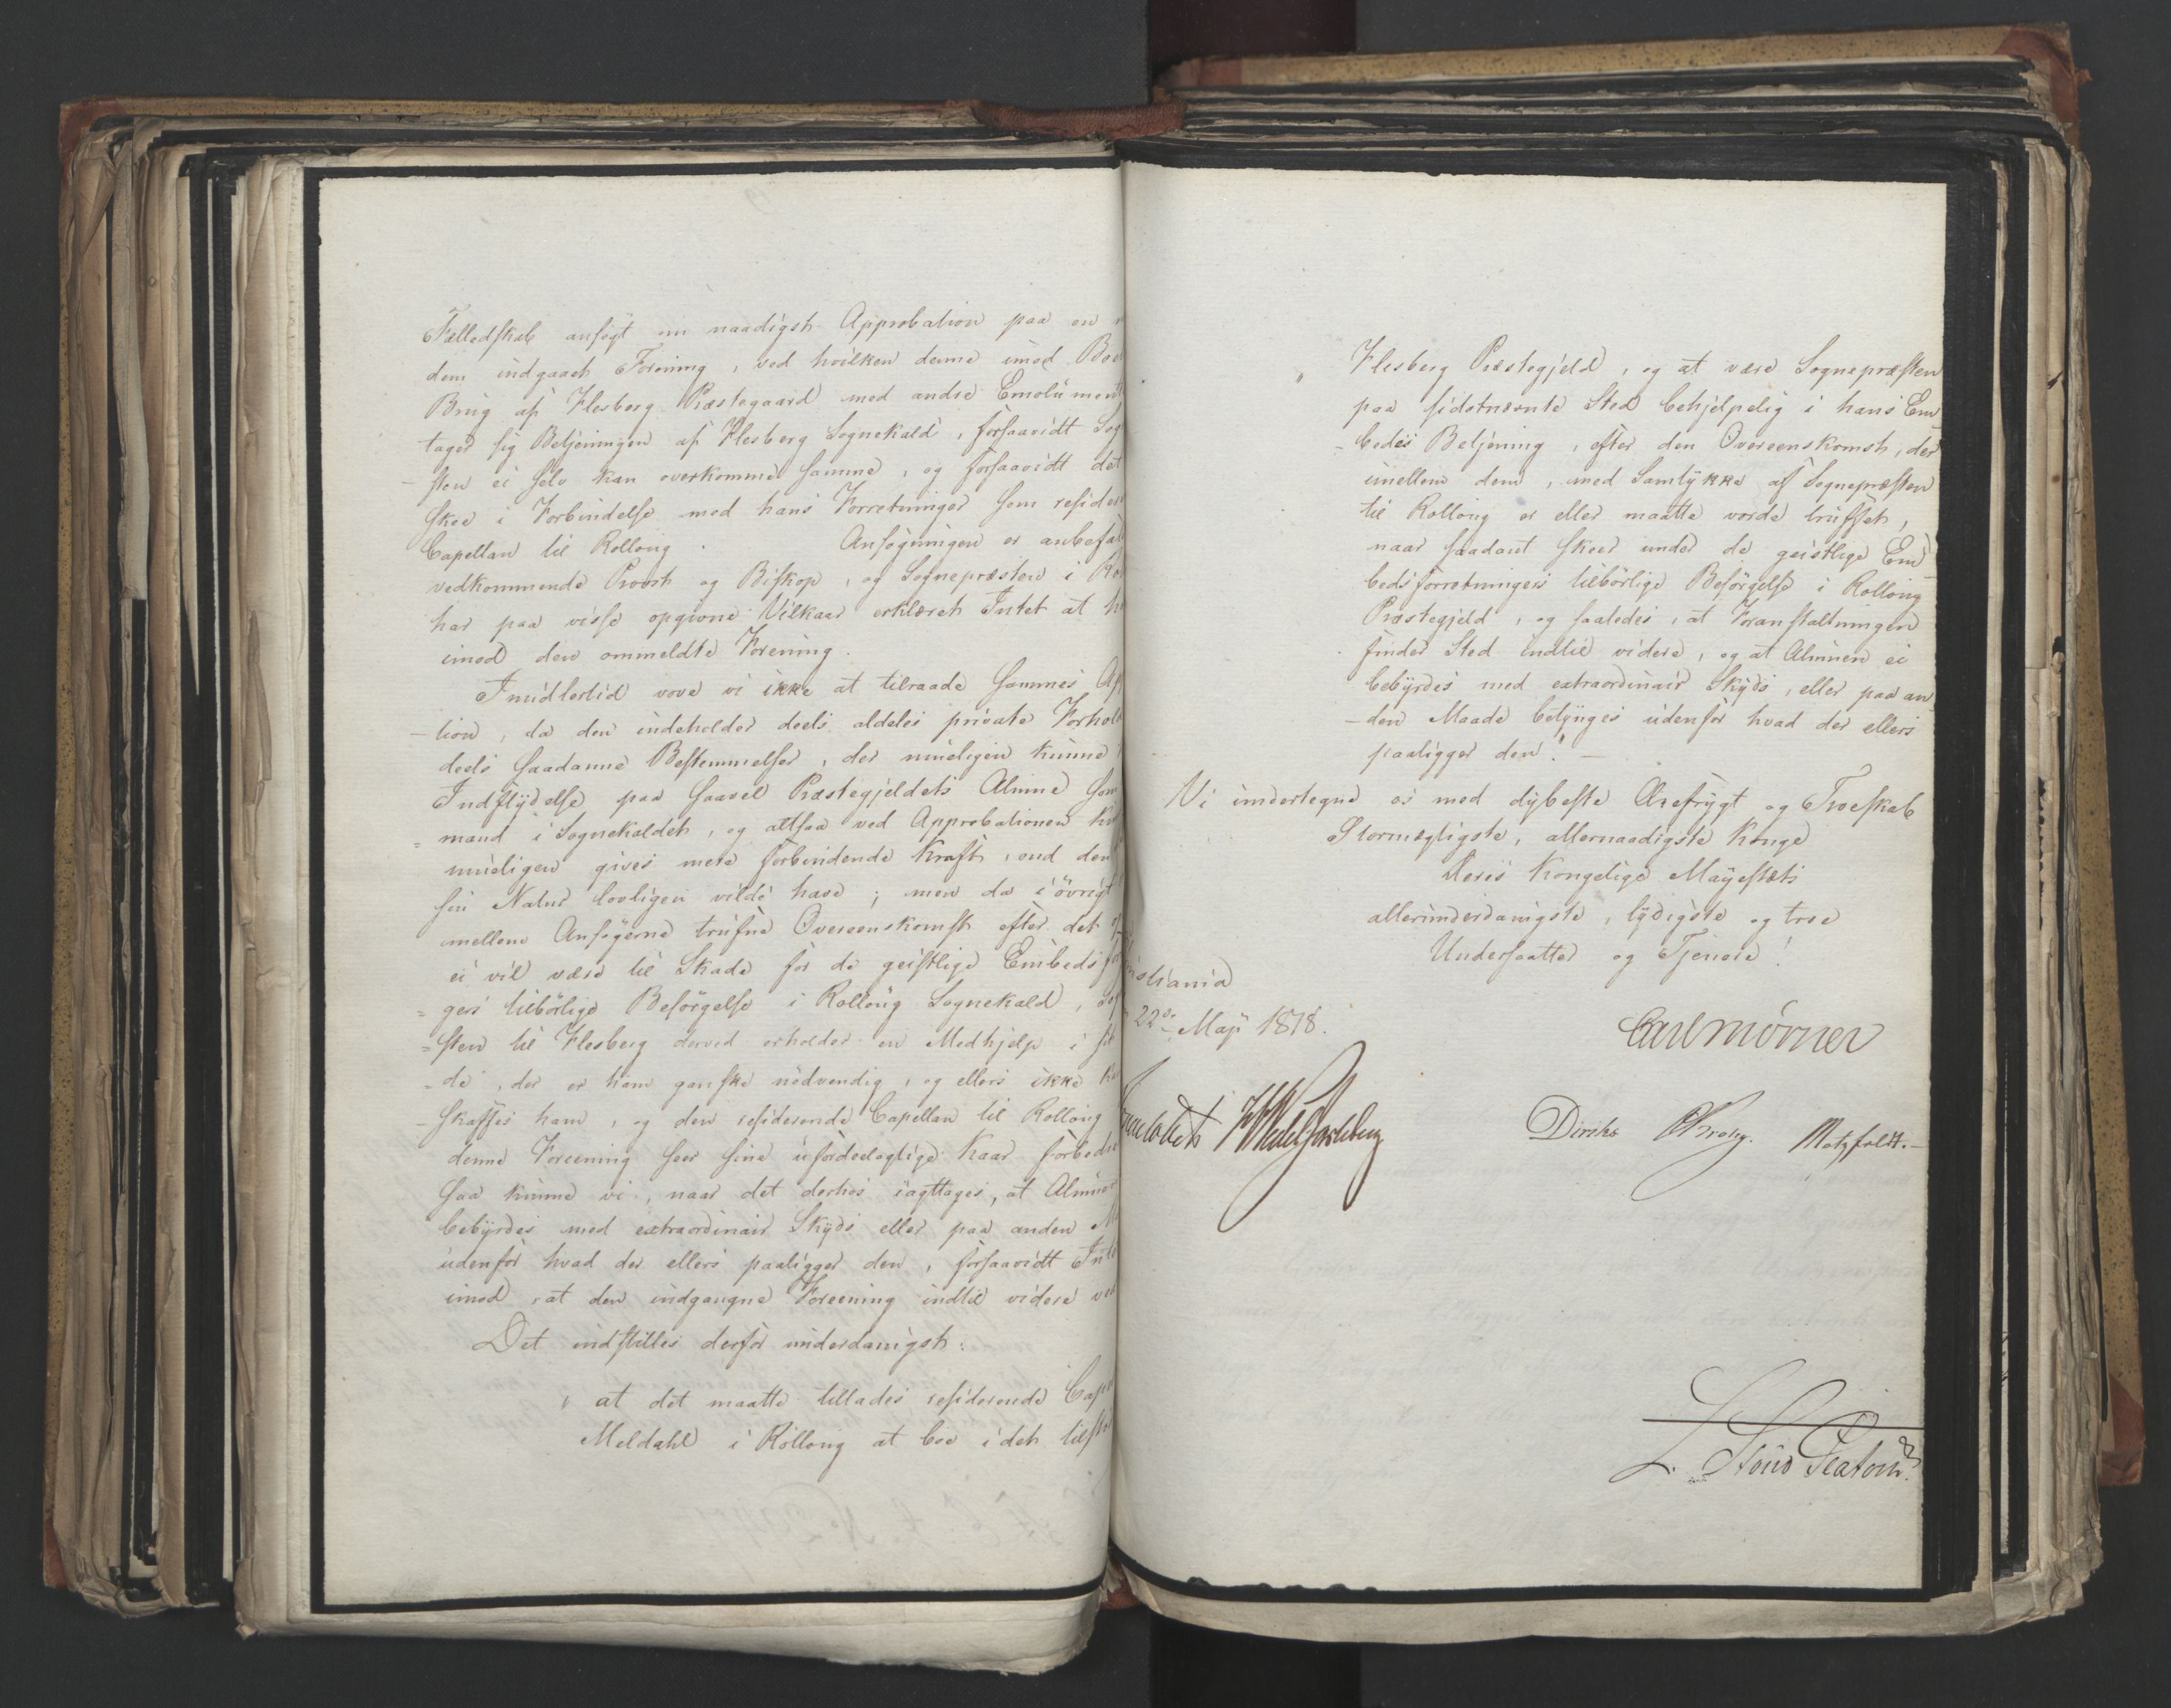 Fælledskab ansøgt om naadigst Approbation paa en
dem indgaaet Forening, ved hvilken denne imod Boe
Brug af Flesberg Præstegaard med andre Emolument
tager sig Betjeningen af Flesberg Sognekald, forsaavidt Sog
-sten ei selv kan overkomme samme, og forsaavidt det
skee i Forbindelse med hans Forretninger som resider
Capellan til Rolloug. Ansøgningen er anbefal
vedkommende Provst og Biskop, og Sognepræsten i Ro
har paa visse opgivne Vilkaar erklæret Intet at h
imod den ommeldte Forening.
Imidlertid vove vi ikke at tilraade sammes Ap
-tion, da den indeholder deels aldeles private Forhol
deels saadanne Bestemmelser, der mueligen kunne
Indflydelse paa saavel Præstegjeldets Almue som
=mand i Sognekaldet, og altsaa ved Approbationen
mueligen gives mere forbindende Kraft, end den
sin Natur lovligen vilde have; men da i øvrigt
mellem Ansøgerne trufne Overeenskomst efter det
ei vil være til Skade for de geistlige Embedsfor
=gers tilbørlige Besørgelse i Rolloug Sognekald,
=sten til Flesberg derved erholder en Medhjelp i sit
-de, der er ham ganske nødvendig, og ellers ikke
-skaffes ham, og den residerende Capellan til Rolloug
denne Foreening seer sine ufordeelagtige Kaar forbedre
saa kunne vi, naar det derhos iagttages, at Almue
bebyrdes med extraordinair Skyds eller paa anden M
udenfor hvad der ellers paaligger den, forsaavidt Inte
imod, at den indgangne Foreening indtil videre
Det indstilles derfor underdanigst:
" at det maatte tillades residerende Cap
Meldahl i Rolloug at boe i det tilst
" Flesberg Præstegjeld, og at være Sognepræsten
paa sidstnævnte Sted behjelpelig i hans Em
-bedes Betjening, efter den Overeenskomst, der
imellem dem, med Samtykke af Sognepræsten
til Rolloug er eller maatte vorde truffet,
naar saadant skeer under de geistlige Em
bedsforretningers tilbørlige Besørgelse i Rolloug
Præstegjeld, og saaledes, at Foranstaltningen
finder Sted indtil videre, og at Almuen ei
bebyrdes med extraordinair Skyds, eller paa an
-den Maade betynges udenfor hvad der ellers
paaligger den." —
Vi undertegne os med dybeste Ærefrygt og Troeskab
Stormægtigste, allernaadigste Konge
Deres Kongelige Mayestæts
allerunderdanigste, lydigste og troe
Undersaatter og Tjenere!
istiania
22de May 1818.
Carl Mörner
HWedel Jarlsberg Diriks Krog. Motzfeldt.—
L. Stoud Platou